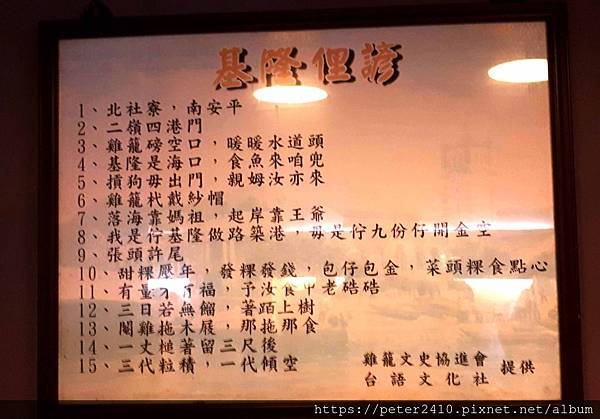 基隆俚諺
1、北社寮，南安平
2、二嶺四港門
3、雞籠磅空口，暖暖水道頭
4、基隆是海口，食魚來咱兜
5、摃狗毋出門，親姆汝亦來
6、雞籠杙戴紗帽
7、落海靠媽祖，起岸靠王爺
8、我是佇基隆做路築港，毋是佇九份仔開金空
9、張頭許尾
10、甜粿壓年，發粿發錢，包仔包金，菜頭粿食點心
11、有量才有福，予汝食甲老硞硞
12、三日若無餾，著蹈上樹
13、閹雞拖木屐，那拖那食
14、一丈槌著留三尺後
15、三代粒積，一代傾空
雞籠文史協進會
台語文化社
提供
https://peter2410.pixnet.net/album